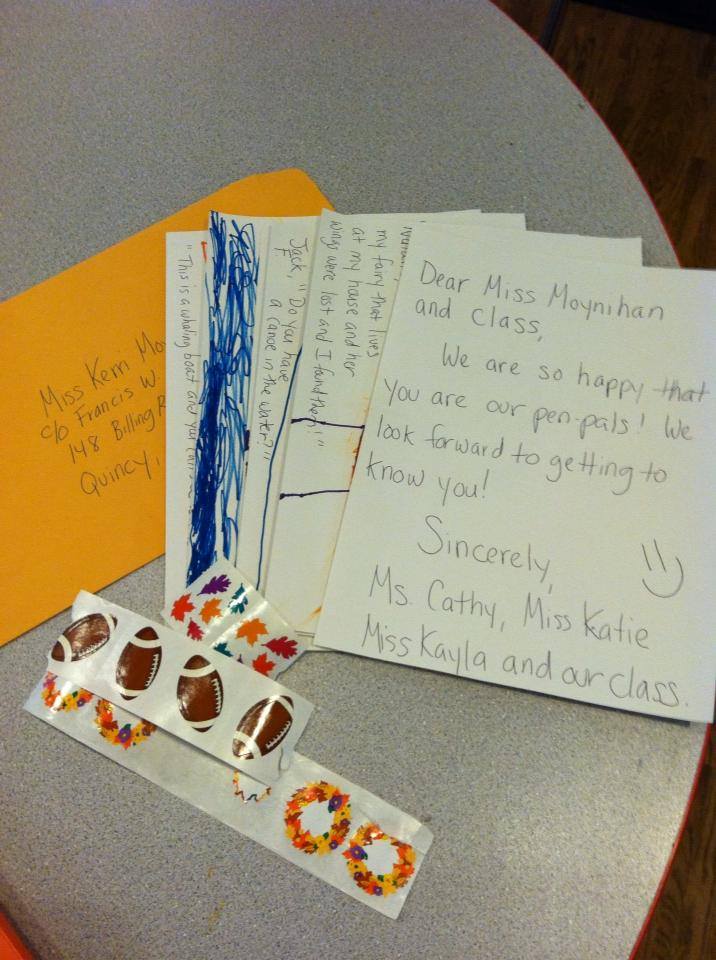 Dear Miss Moynihan
and Class,
We are so happy that
you are our pen-pals! We
look forward to getting to
know you!
Sincerely,
Ms. Cathy, Miss Katie
Miss Kayla and our class.
my fairy that lives
at my house and her
wings were lost and I found them!"
Jack, "Do you have
a canoe in the water?"
"This is a whaling boat and you
Miss Kerri
c/o Francis W.
148 Billing
Quincy,